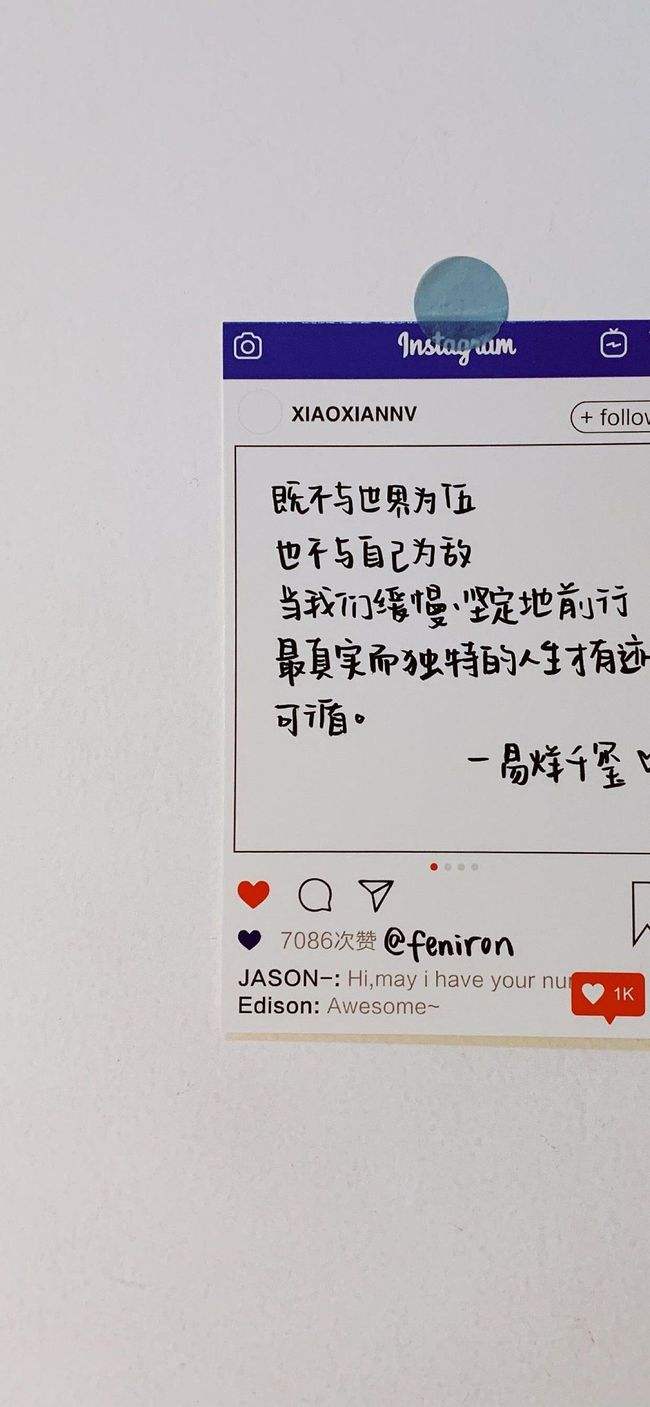 Instagram
XIAOXIANNV
+ follow
既不与世界为伍
也不与自己为敌
当我们缓慢、坚定地前行
最真实而独特的人生才有迹
可循。
一易烊千玺
7086次赞 @feniron
JASON-: Hi,may i have your nu
1K
Edison: Awesome~